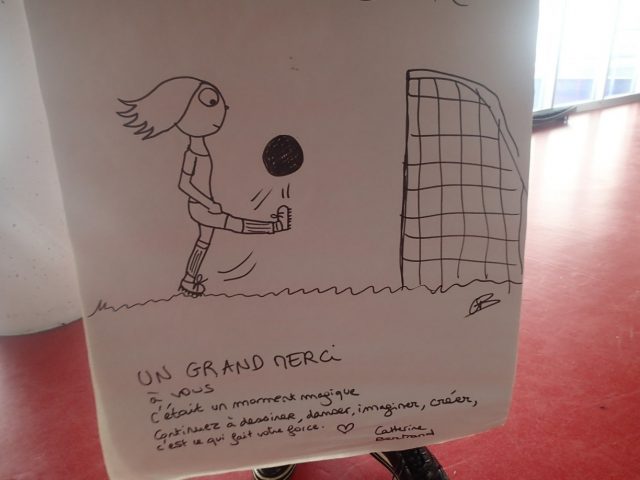 UN GRAND MERCI
à vous
c'était un moment magique
Continuez à dessiner, danser, imaginer, créer,
c'est ce qui fait votre force. ♡ Catherine
Bertrand
CB